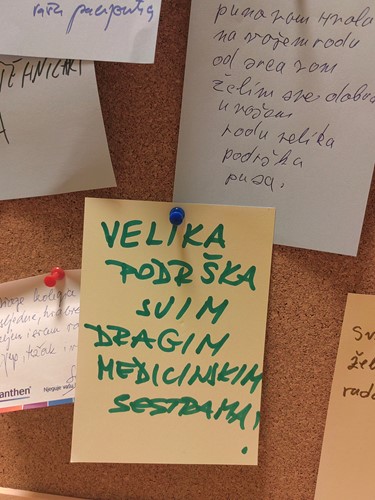 vaša pacijentica
TEHNIČARI
puno vam hvala
na vašem radu
od srca vam
želim sve dobro
u vašem
radu velika
podrška
pusa.
VELIKA
PODRŠKA
SVIM
DRAGIM
MEDICINSKIM
SESTRAMA!
drage kolegice
anthen®
Njeguje vašu